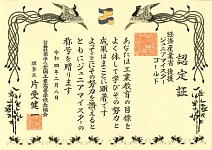 認定証
経済産業省後援
ジュニアマイスター
ゴールド
あなたは工業教育の目標を
よく体して学びその努力と
成果はまことに顕著です
よってここにその努力を讃えると
ともにジュニアマイスターの
称号を贈ります
令和四年二月八日
公益社団法人全国工業高等学校長協会
理事長